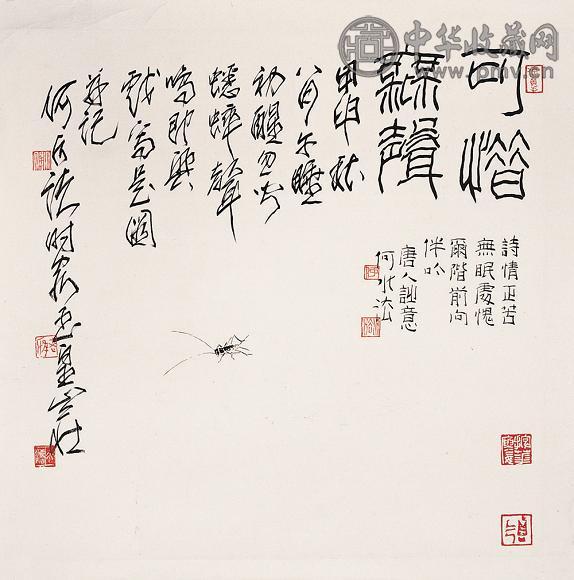 中华收藏网
www.pmv.cn
可
聲
甲申秋
八月午睡
初醒忽
蟋蟀聲
鳴即興
戲寫是圖
并記
何水法时客玉皇山莊
詩情正苦
無眠處愧
爾階前向
伴吟
唐人詩意
何水法